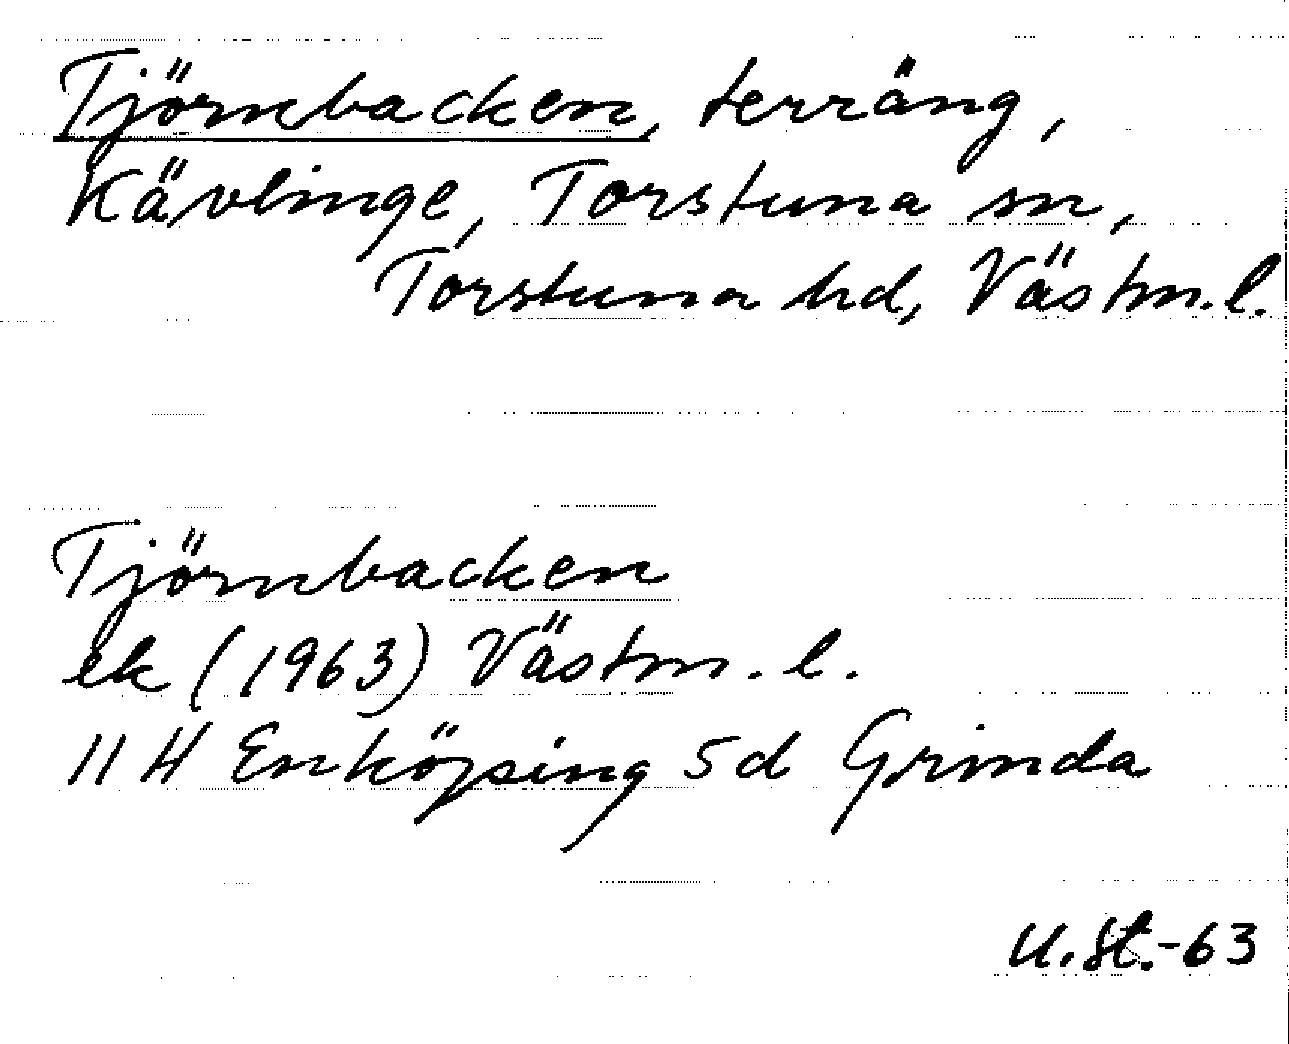 Tjörnbacken, terräng,
Kävlinge, Torstuna sn,
Torstuna hd, Västm. l.
Tjörnbacken
ek (1963) Västm. l.
11 H Enköping 5d Grinda
U.St.-63